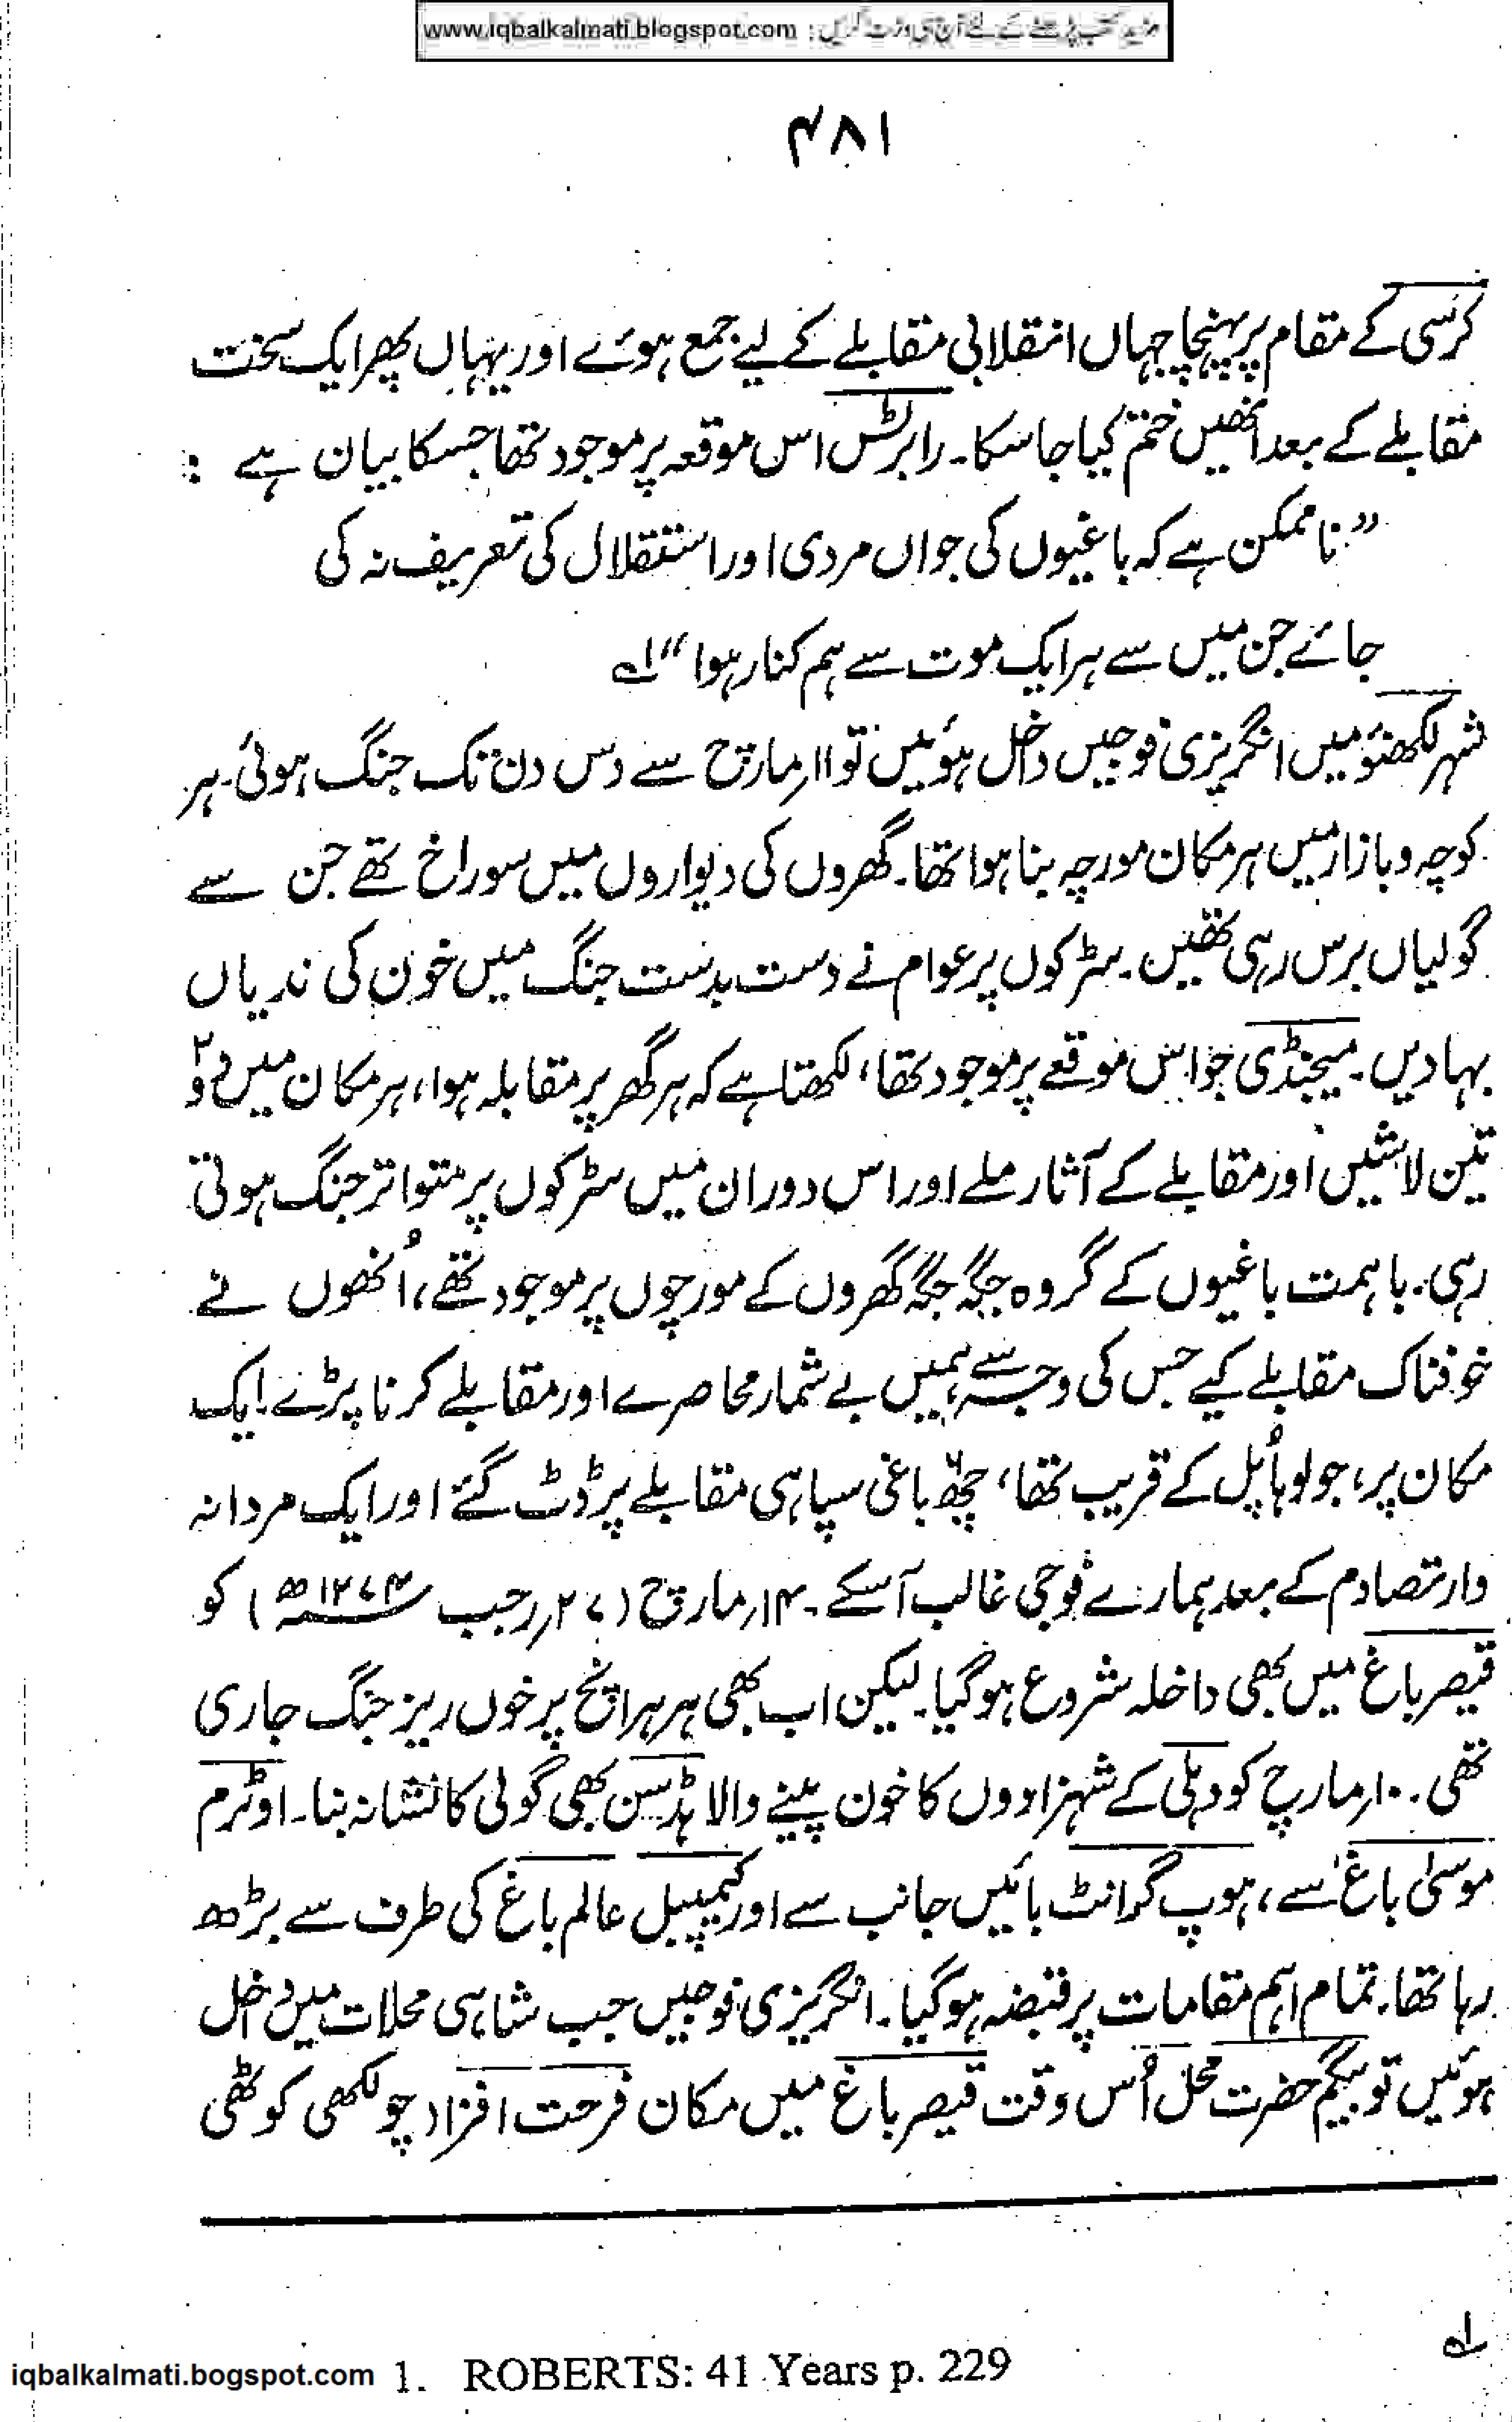 www.iqbalkalmati.blogspot.com : مزید کتب پڑھنے کے لئے آج ہی وزٹ کریں
۴۸۱
کرسی کے مقام پر پہنچا جہاں انقلابی مقابلے کے لیے جمع ہوئے اور یہاں پھر ایک سخت
مقابلے کے بعد انھیں ختم کیا جا سکا۔ رابرٹس اس موقعہ پر موجود تھا جسکا بیان ہے :
”ناممکن ہے کہ باغیوں کی جواں مردی اور استقلال کی تعریف نہ کی
جائے جن میں سے ہر ایک موت سے ہم کنار ہوا“ ۱ے
شہر لکھنؤ میں انگریزی فوجیں داخل ہوئیں تو ۱۱؍مارچ سے دس دن تک جنگ ہوئی۔ ہر
کوچہ و بازار میں ہر مکان مورچہ بنا ہوا تھا۔ گھروں کی دیواروں میں سوراخ تھے جن سے
گولیاں برس رہی تھیں۔ سڑکوں پر عوام نے دست بدست جنگ میں خون کی ندیاں
بہا دیں۔ میجنڈی جو اس موقعے پر موجود تھا، لکھتا ہے کہ ہر گھر پر مقابلہ ہوا، ہر مکان میں دو۲
تین لاشیں اور مقابلے کے آثار ملے اور اس دوران میں سڑکوں پر متواتر جنگ ہوتی
رہی۔ باہمت باغیوں کے گروہ جگہ جگہ گھروں کے مورچوں پر موجود تھے، اُنھوں نے
خوفناک مقابلے کیے جس کی وجہ سے ہمیں بے شمار محاصرے اور مقابلے کرنا پڑے۔ ایک
مکان پر، جو لوہا پُل کے قریب تھا، چھ باغی سپاہی مقابلے پر ڈٹ گئے اور ایک مردانہ
وار تصادم کے بعد ہمارے فوجی غالب آسکے۔ ۱۴؍مارچ (۲۷؍رجب ۱۲۷۴ھ) کو
قیصر باغ میں بھی داخلہ شروع ہوگیا۔ لیکن اب بھی ہر ہر انچ پر خوں ریز جنگ جاری
تھی۔ ۱۰؍مارچ کو دہلی کے شہزادوں کا خون پینے والا ہڈسن بھی گولی کا نشانہ بنا۔ اوٹرم
موسیٰ باغ سے، ہوپ گرانٹ بائیں جانب سے اور کیمپبل عالم باغ کی طرف سے بڑھ
رہا تھا۔ تمام اہم مقامات پر قبضہ ہوگیا۔ انگریزی فوجیں جب شاہی محلات میں داخل
ہوئیں تو بیگم حضرت محل اُس وقت قیصر باغ میں مکان فرحت افزا، چولکھی کوٹھی
۱ے
1. ROBERTS: 41 Years p. 229
iqbalkalmati.bogspot.com